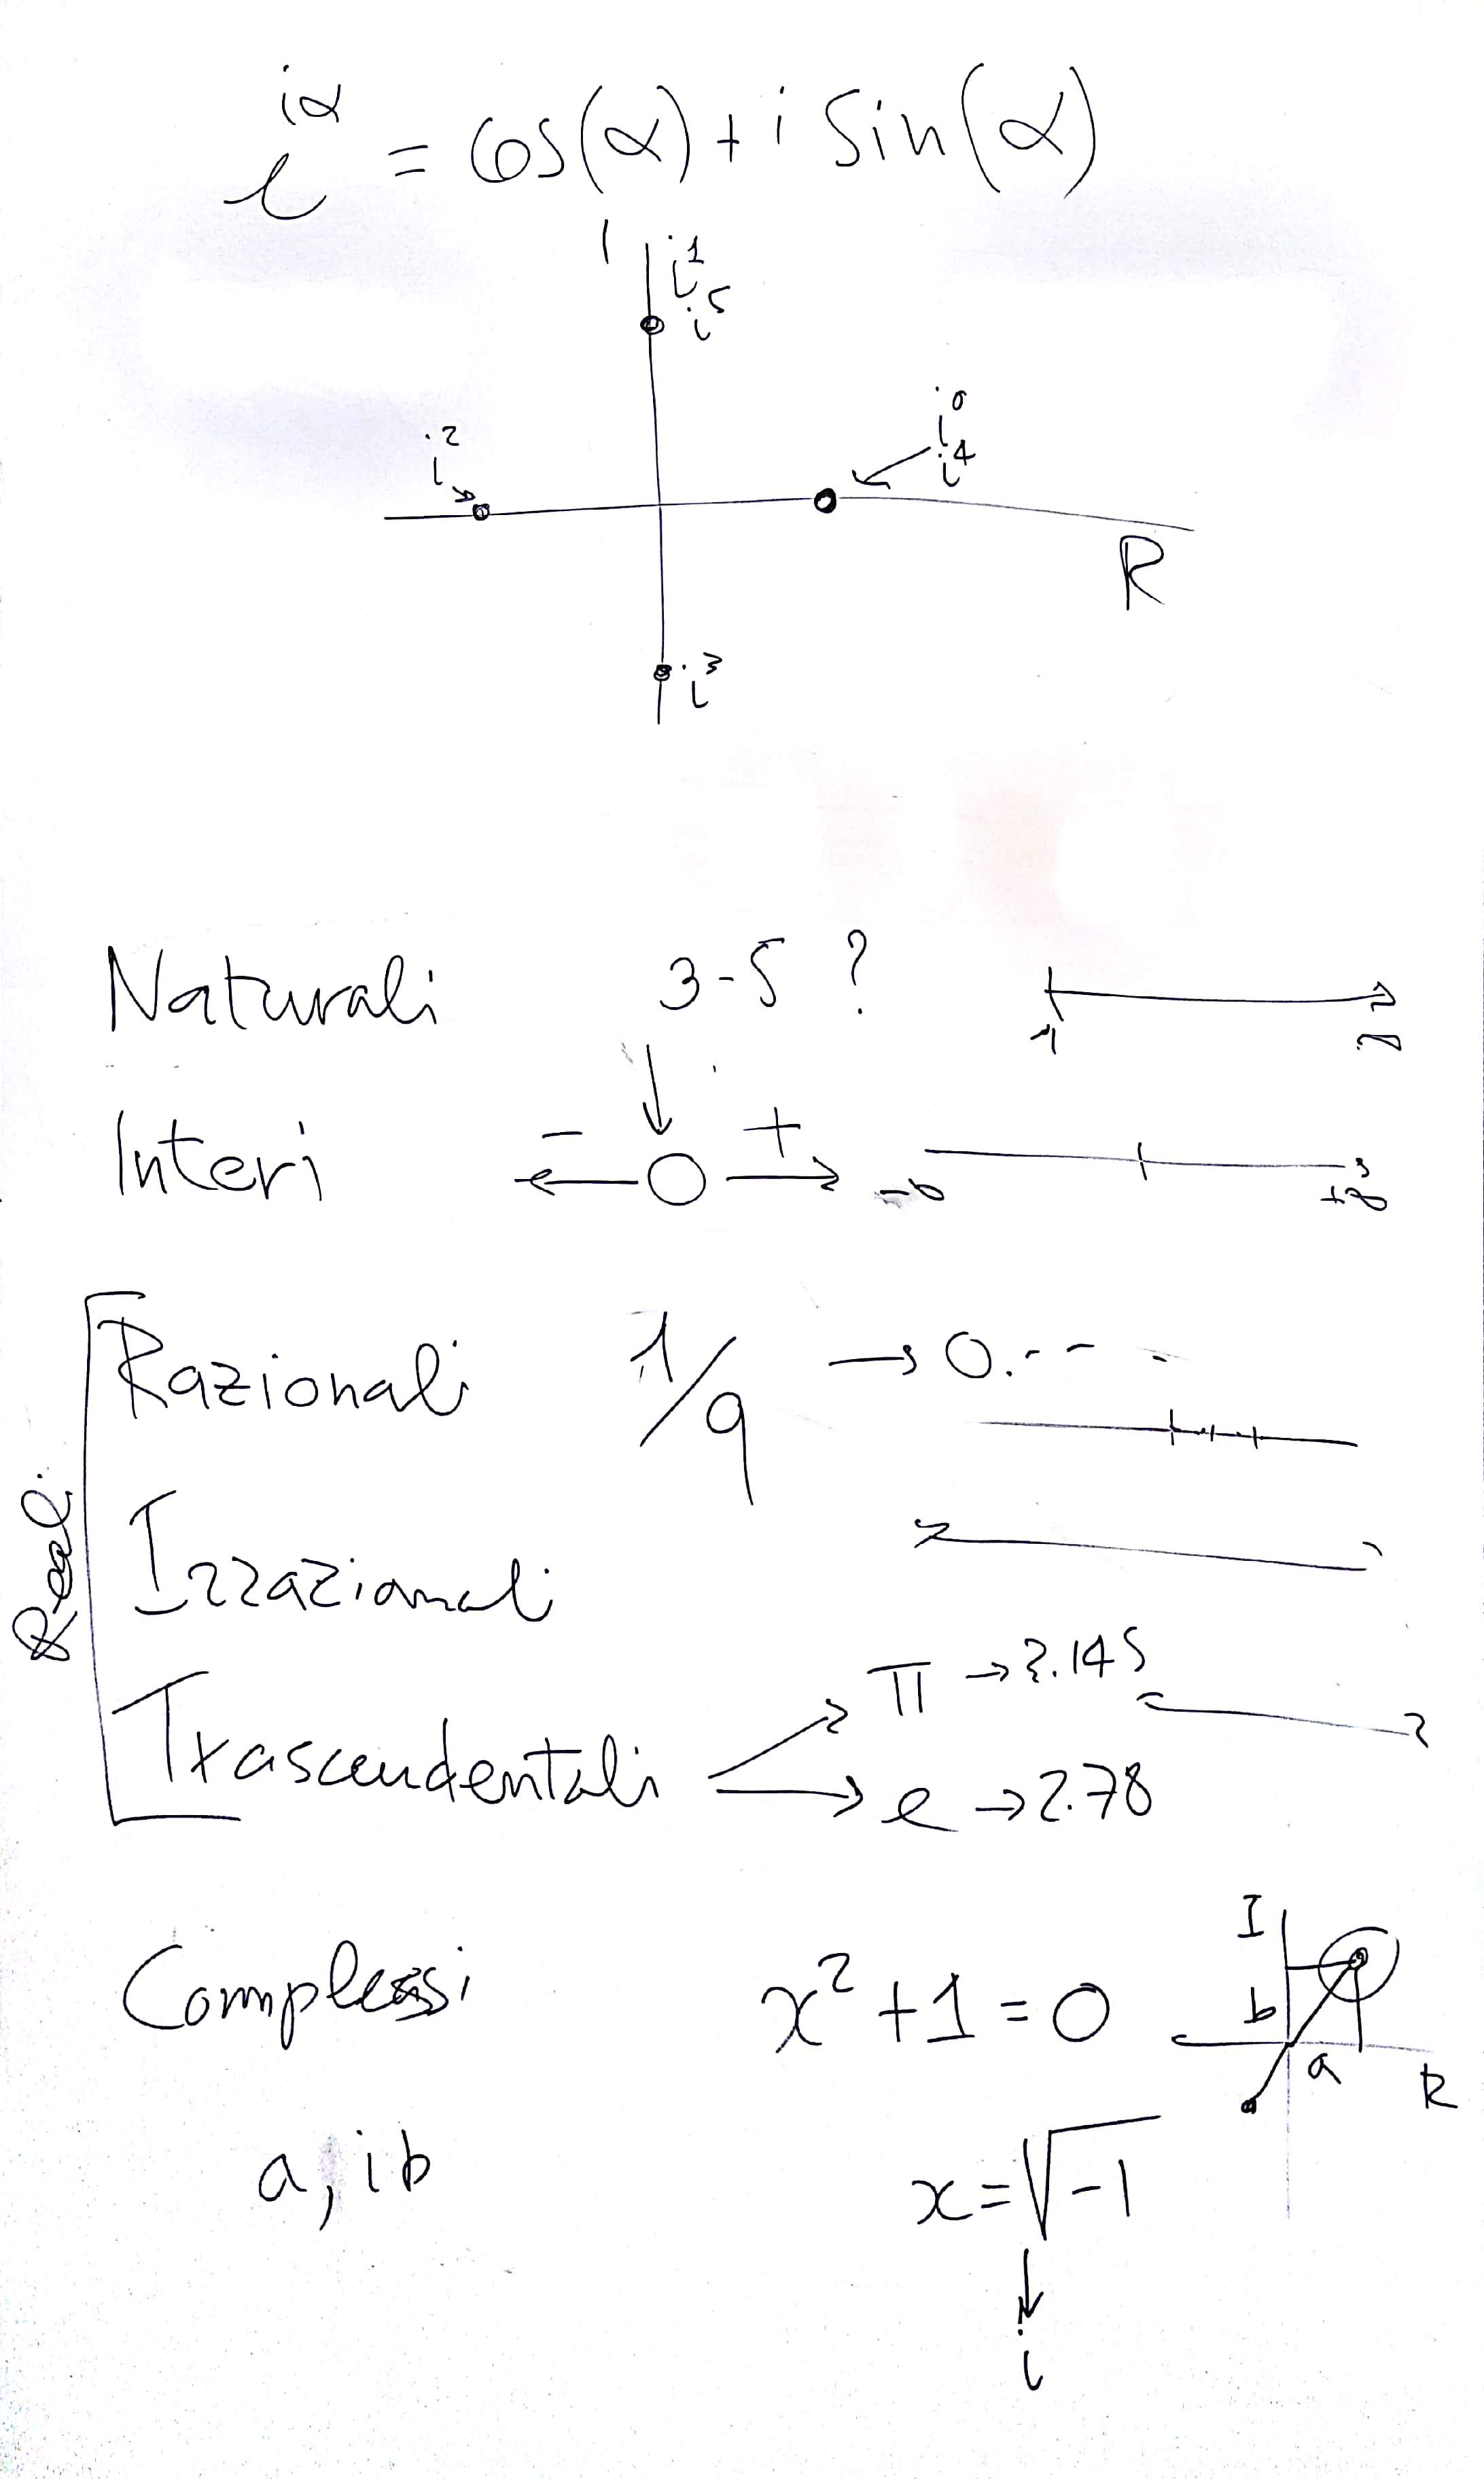 e^{iα} = cos(α) + i sin(α)
I
i^1
i^5
i^0
i^4
i^2
R
i^3
Naturali 3-5 ? 1 ∞
Interi - 0 + -∞ +∞
Reali
Razionali 1/9 → 0.---
Irrazionali
Trascendentali π → 3.145
e → 2.78
Complessi x² + 1 = 0 I b a R
a, ib x = √-1
i